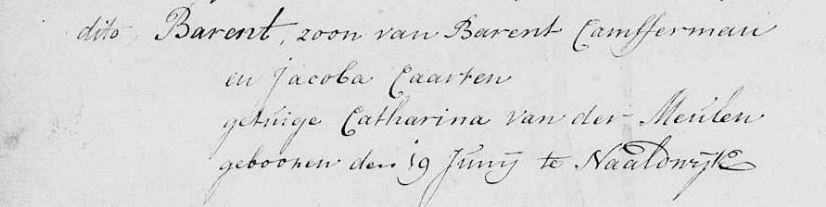 dito, Barent, zoon van Barent Camfferman
en Jacoba Caarten
getuige Catharina van der Meulen
gebooren den 19 Junij te Naaldwijk